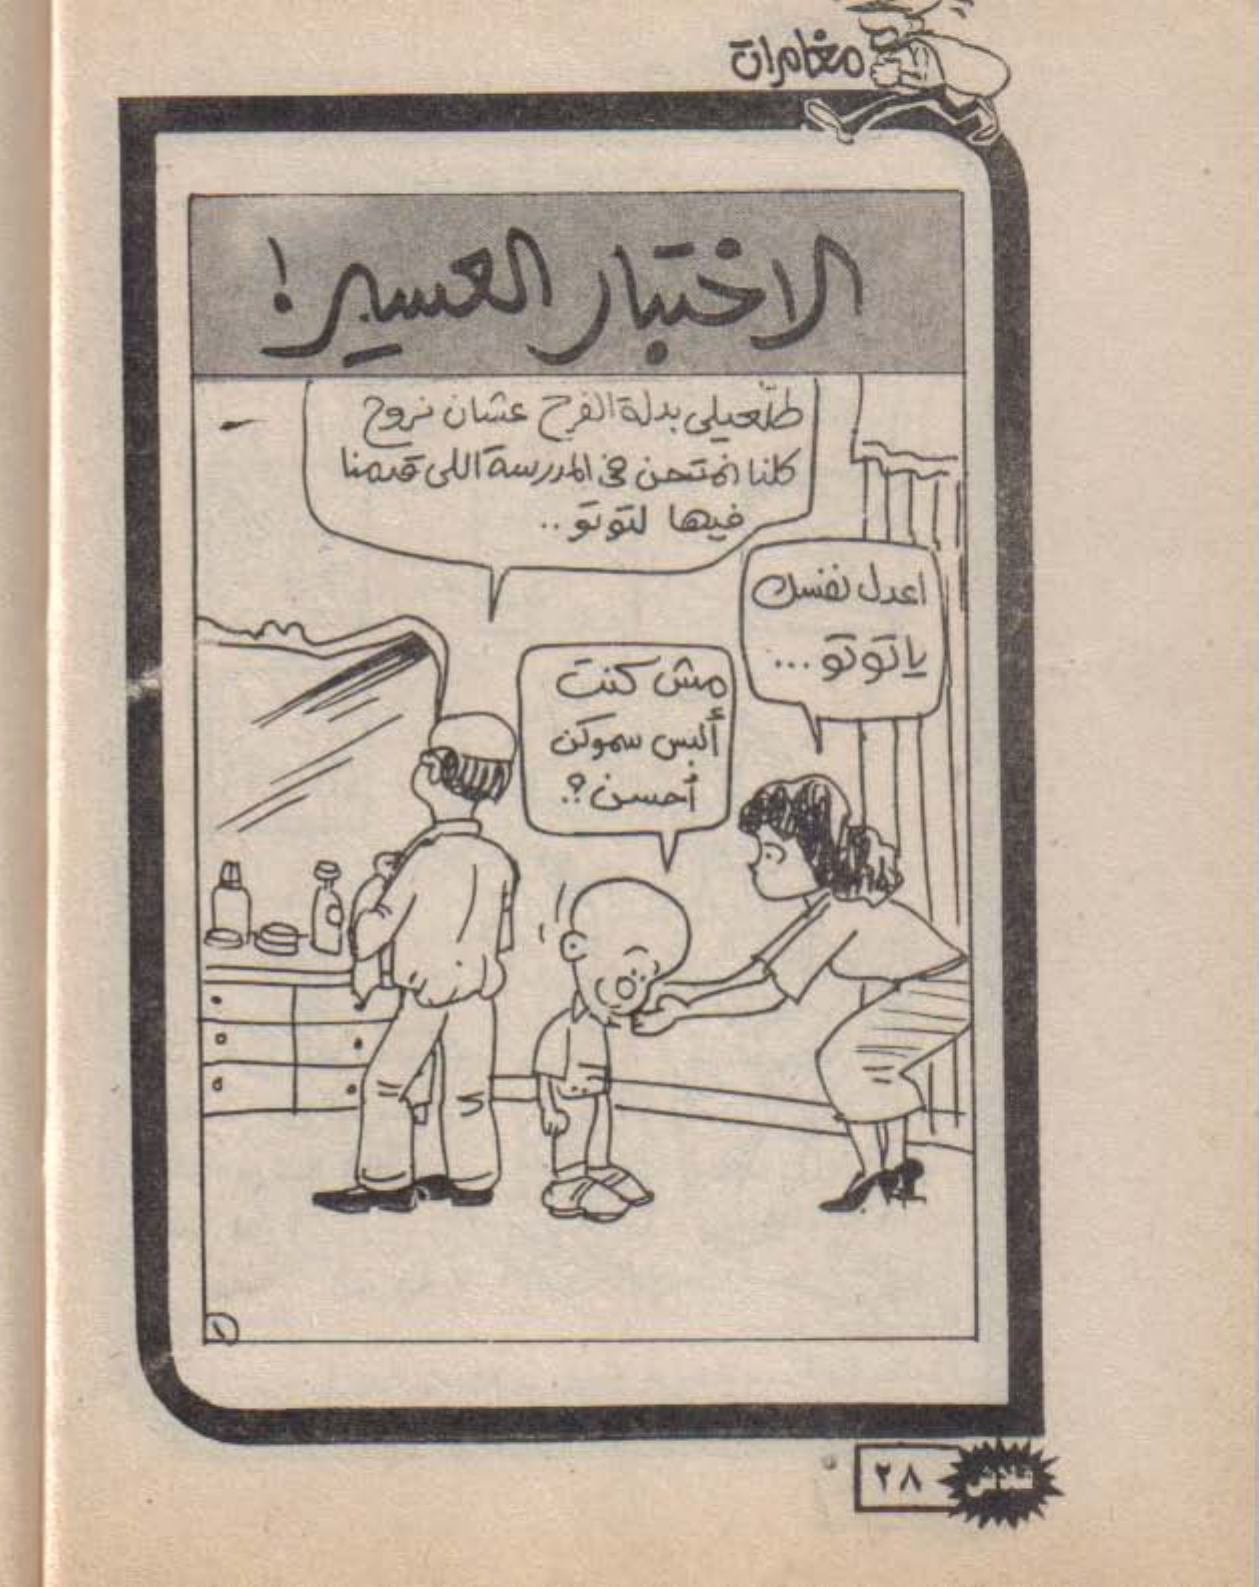 مغامرات
الاختبار العسير!
طلّعيلى بدلة الفرح عشان نروح
كلنا نمتحن فى المدرسة اللى قدمنا
فيها لتوتو..
اعدل نفسك
يا توتو...
مش كنت
ألبس سموكن
أحسن؟.
١
٢٨
فلاش